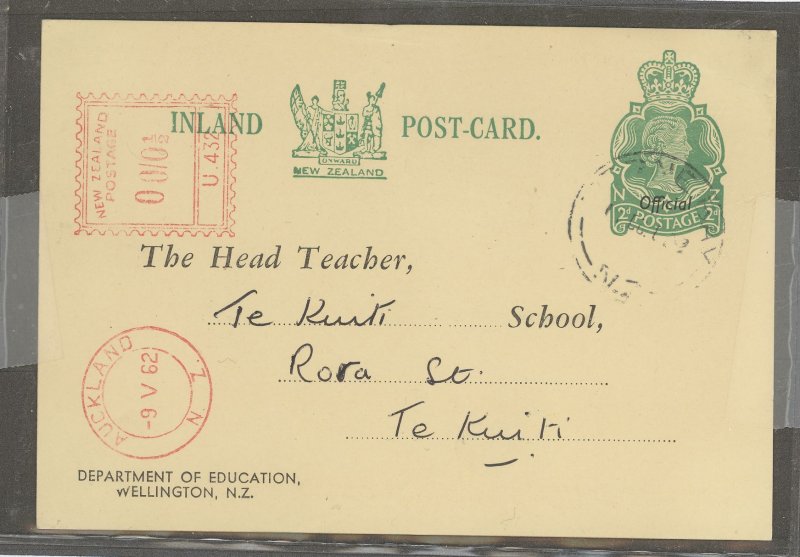 INLAND POST-CARD.
ONWARD
NEW ZEALAND
NEW ZEALAND
POSTAGE
00/0½
U 432
Official
N Z
2d POSTAGE 2d
N.Z
The Head Teacher,
Te Kuiti School,
Rora St.
Te Kuiti
AUCKLAND N Z
-9 V 62
DEPARTMENT OF EDUCATION,
WELLINGTON, N.Z.